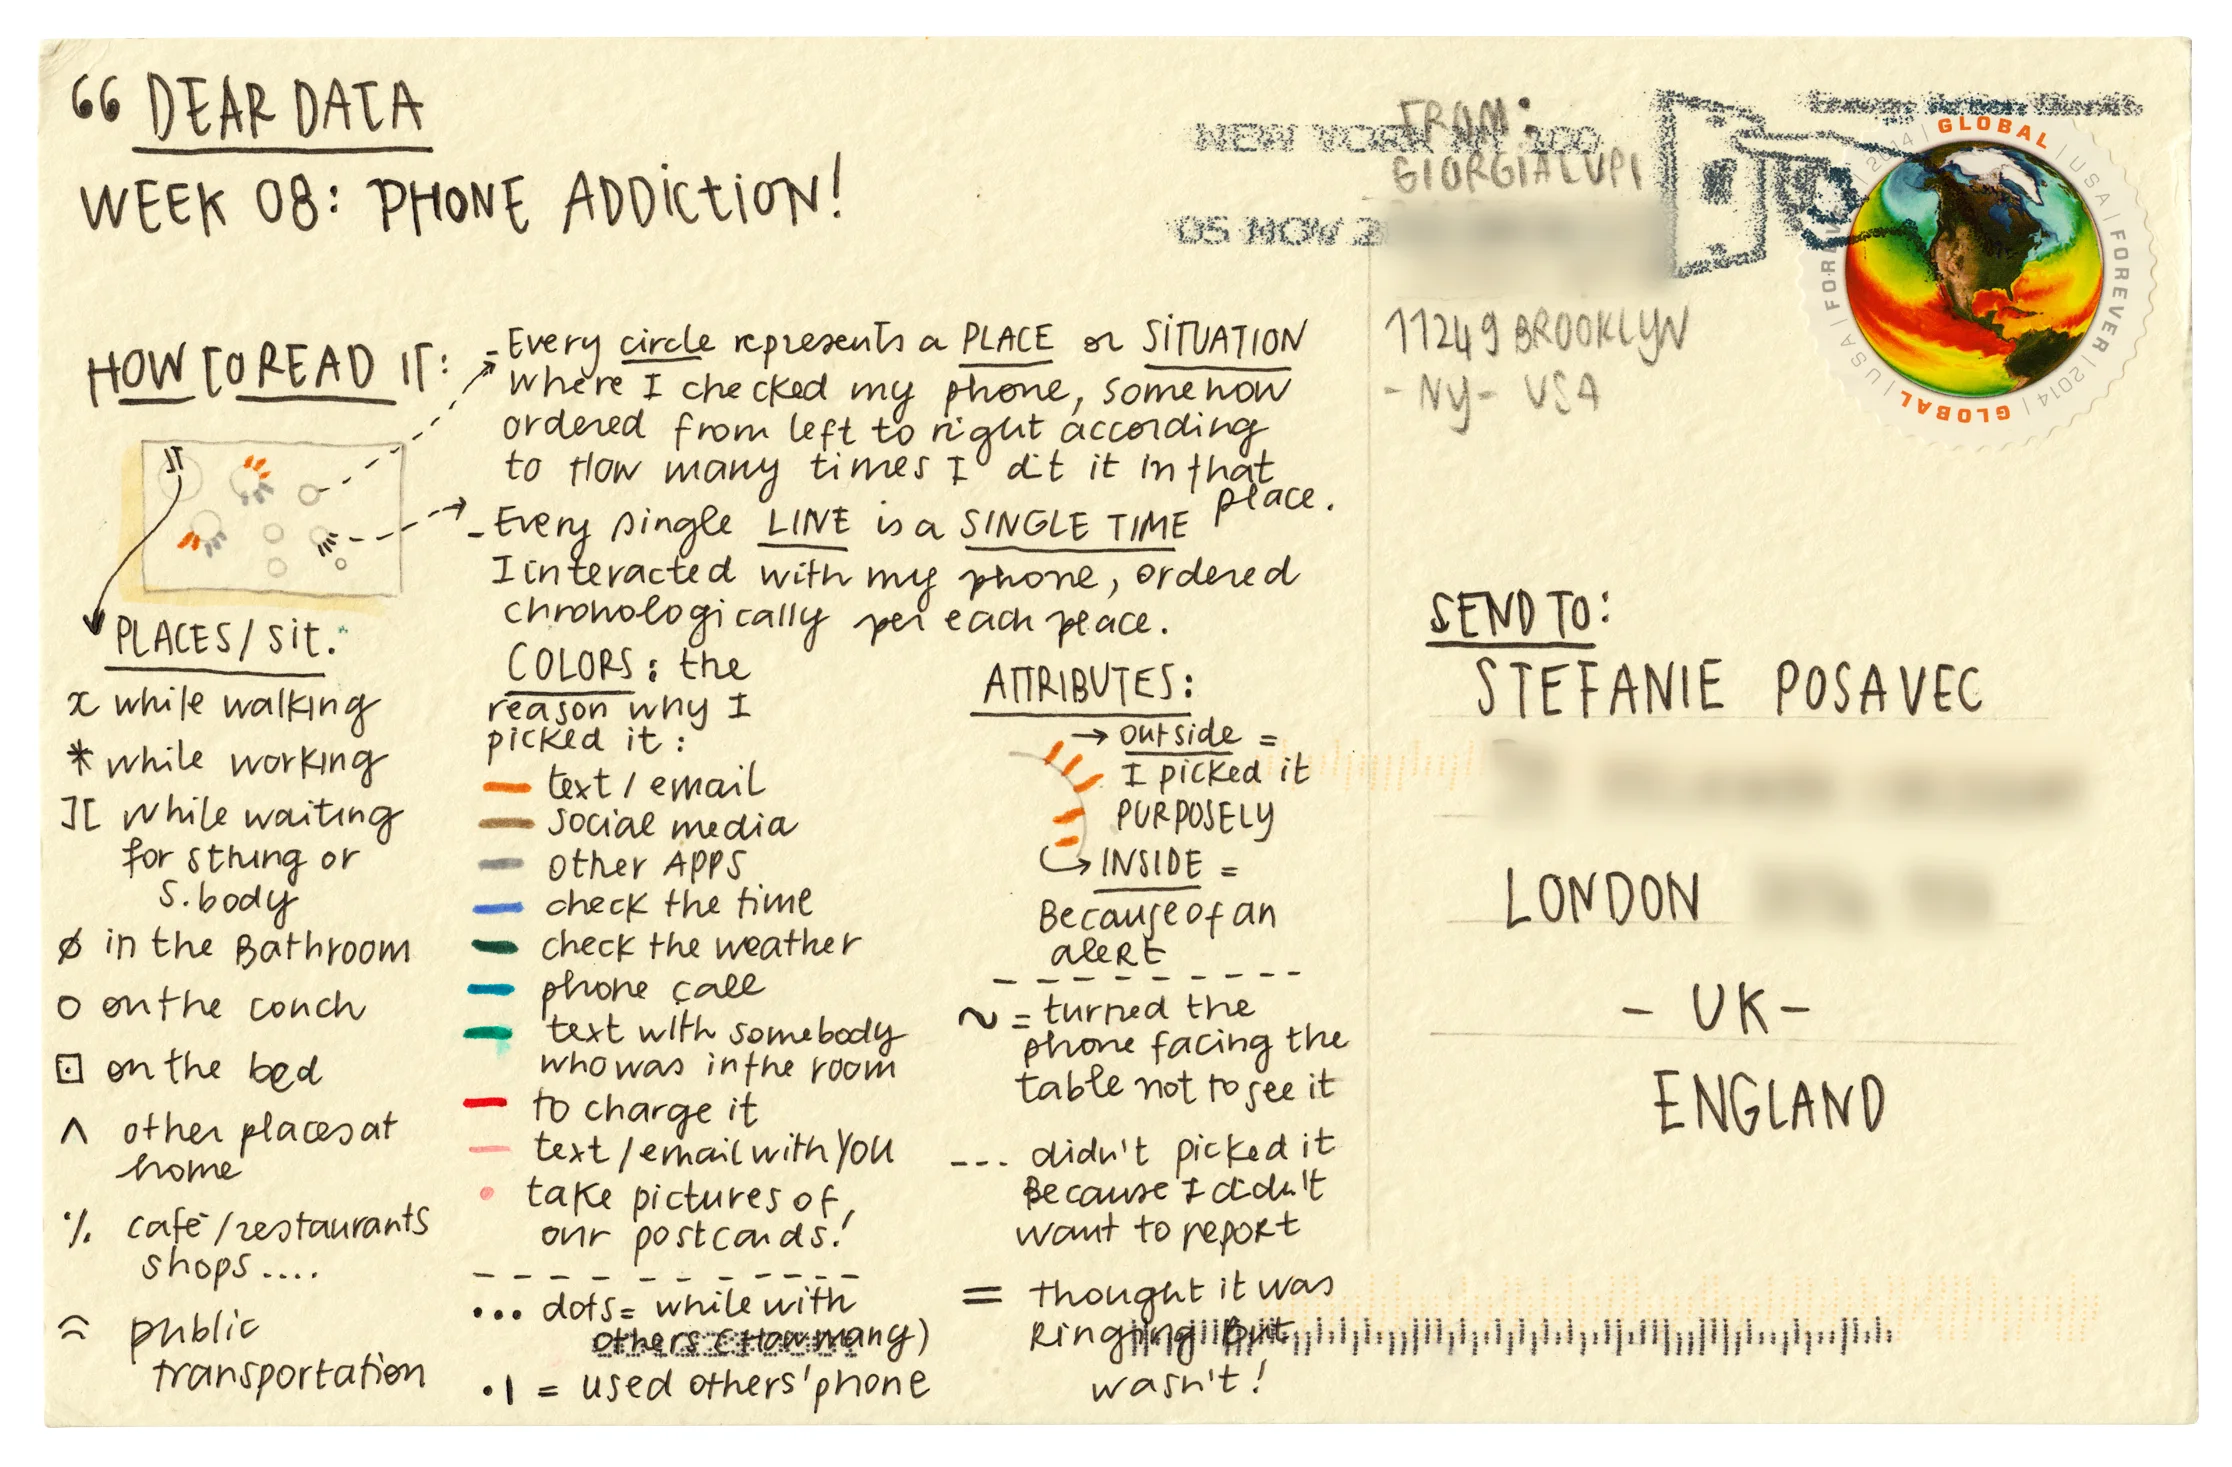 “ DEAR DATA
WEEK 08: PHONE ADDICTION!
HOW TO READ IT:
- Every circle represents a PLACE or SITUATION
where I checked my phone, somehow
ordered from left to right according
to HOW many times I dit it in that
place.
- Every single LINE is a SINGLE TIME
I interacted with my phone, ordered
chronologically per each place.
PLACES/ SIT.
x while walking
* while working
][ while waiting
for sthing or
s.body
ø in the Bathroom
o on the couch
⊡ on the bed
∧ other places at
home
٪ cafè/restaurants
shops....
public
transportation
COLORS: the
reason why I
picked it:
text / email
social media
other APPS
check the time
check the weather
phone call
text with somebody
who was in the room
to charge it
text/email with YOU
take pictures of
our postcards!
... dots = while with
others (How many)
.| = used others' phone
ATTRIBUTES:
→ outside =
I picked it
PURPOSELY
→ INSIDE =
Because of an
alert
~ = turned the
phone facing the
table not to see it
--- didn't picked it
Because I didn't
want to report
= thought it was
Ringing But
wasn't!
FROM:
GIORGIA LUPI
11249 BROOKLYN
- NY - USA
NEW YORK NY 100
05 NOV 2
GLOBAL | USA | FOREVER | 2014 | GLOBAL | USA | FOREVER | 2014 |
SEND TO:
STEFANIE POSAVEC
LONDON
- UK -
ENGLAND